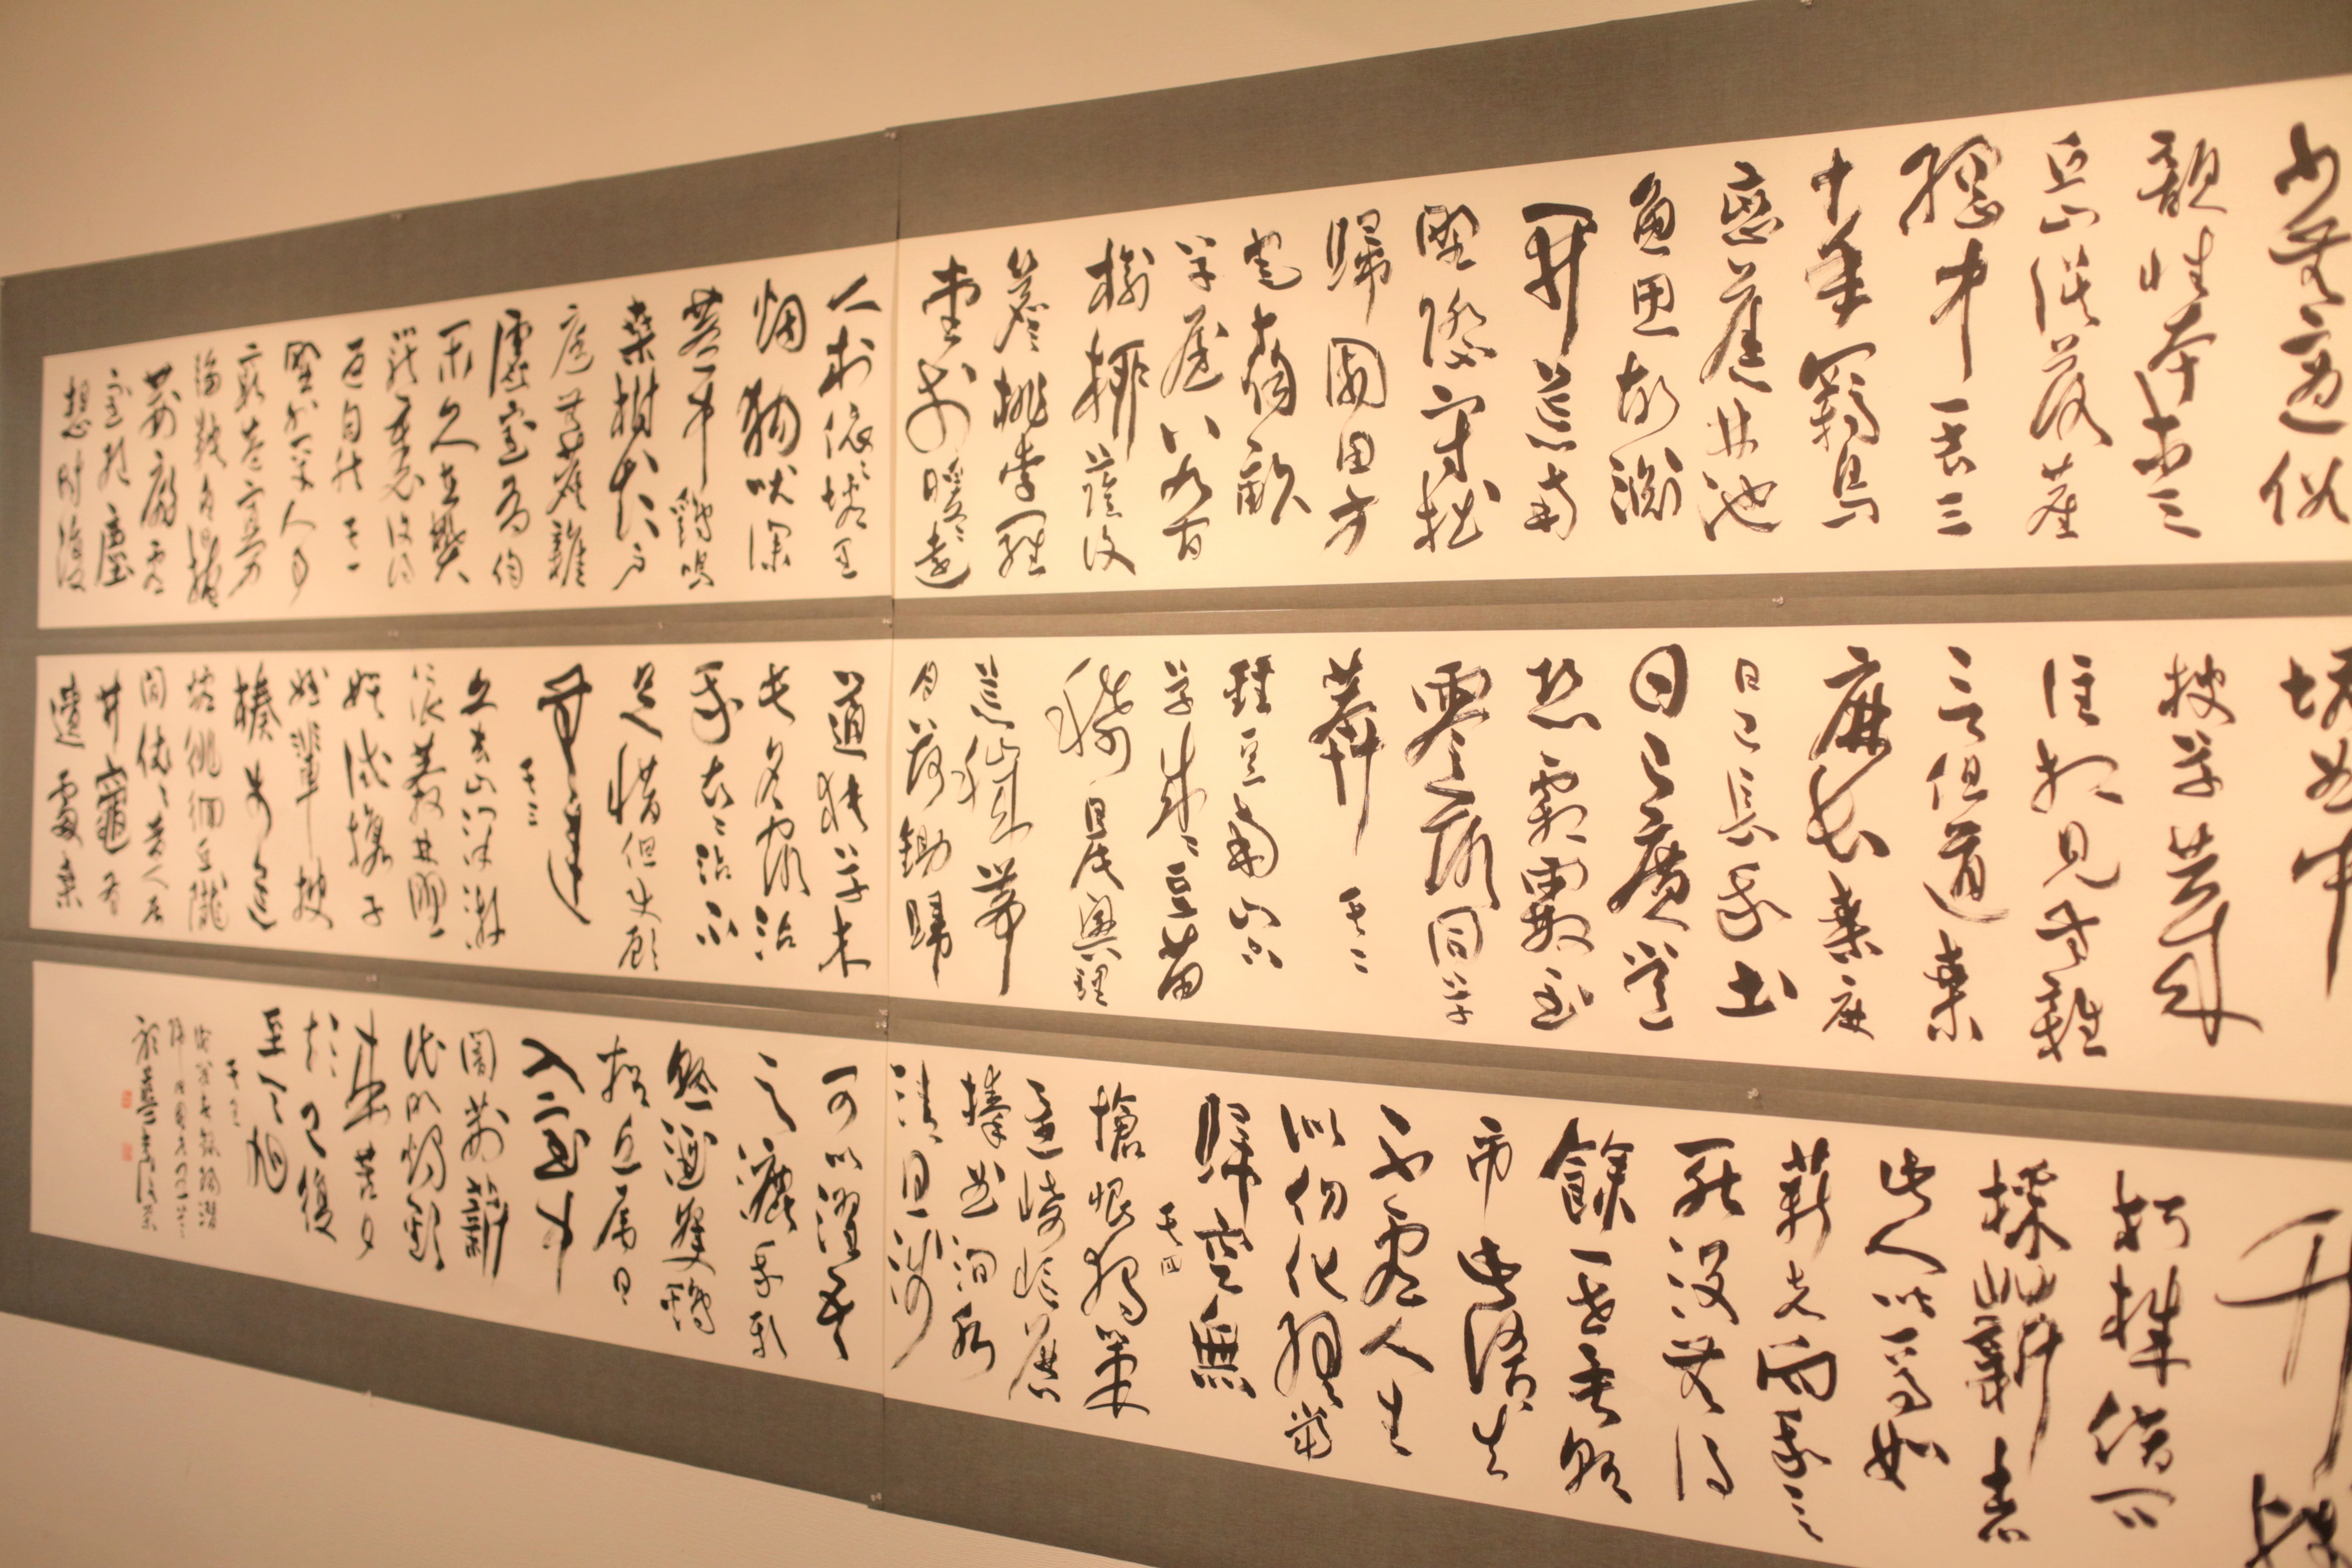 少無適俗
韻性本愛
丘山誤落塵
網中一去三
十年羈鳥
戀舊林池
魚思故淵
開荒南
野際守拙
歸園田方
宅十餘畝
草屋八九間
榆柳蔭後
簷桃李羅
堂前曖曖遠
人村依依墟里
烟狗吠深
巷中雞鳴
桑樹顛戶
庭無塵雜
虛室有餘
閒久在樊
籠裏復得
返自然其一
野外罕人事
窮巷寡
輪鞅白日掩
荊扉虛
室絕塵
想時復
墟曲中
披草共來
往相見無雜
言但道桑
麻長桑麻
日已長我土
日已廣常
恐霜霰至
零落同草
莽其二
種豆南山下
草盛豆苗
稀晨興理
荒穢帶
月荷鋤歸
道狹草木
長夕露沾
我衣衣沾不
足惜但使願
無違
其三
久去山澤游
浪莽林野
娛試攜子
姪輩披
榛步荒
墟徘徊丘隴
間依依昔人居
井竈有
遺處桑
竹殘
朽株借問
採薪者
此人皆焉如
薪者向我言
死沒無復
餘一世異朝
市此語真
不虛人生
似幻化終當
歸空無
其四
悵恨獨策
還崎嶇歷
榛曲澗水
清且淺
可以濯吾
足漉我新
熟酒隻雞
招近局日
入室中
闇荊薪
代明燭歡
來苦夕
短已復
至天旭
其五